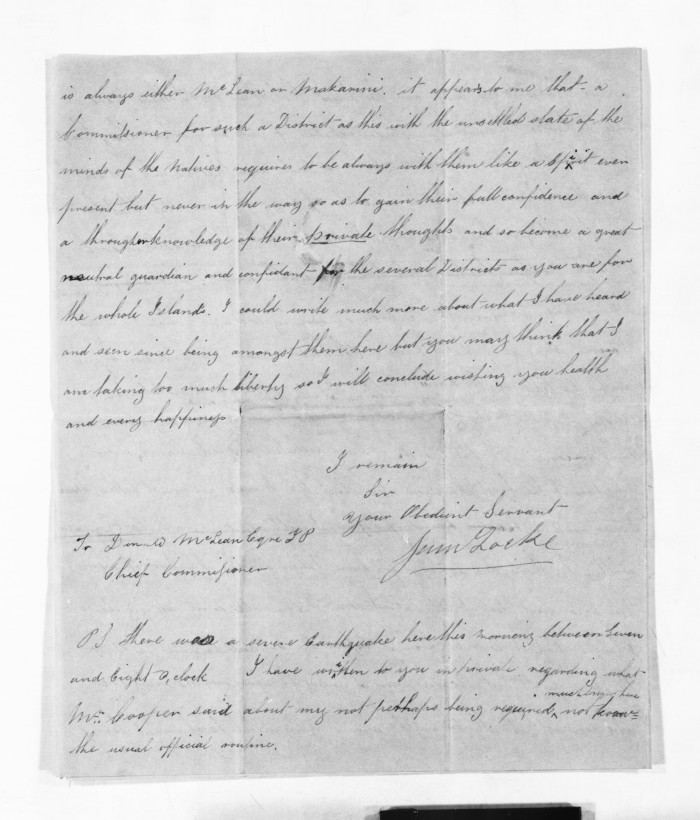 is always either McLean or Makarini. it appears to me that a
Commissioner for such a District as this with the unsettled state of the
minds of the Natives requires to be always with them like a spirit ever
present but never in the way so as to gain their full confidence and
a through knowledge of their private thoughts and so become a great
neutral guardian and confidant for the several Districts as you are for
the whole Islands. I could write much more about what I have heard
and seen since being amongst them here but you may think that I
am taking too much liberty so I will conclude wishing you health
and every happiness
I remain
Sir
Your Obedient Servant
Saml Locke
To McLean Eqre JP
Chief Commisioner
PS There was a severe Earthquake here this Morning between Seven
and Eight O,clock I have written to you in private regarding what
Mr. Cooper said about my not perhaps being required, not
the usual official routine.